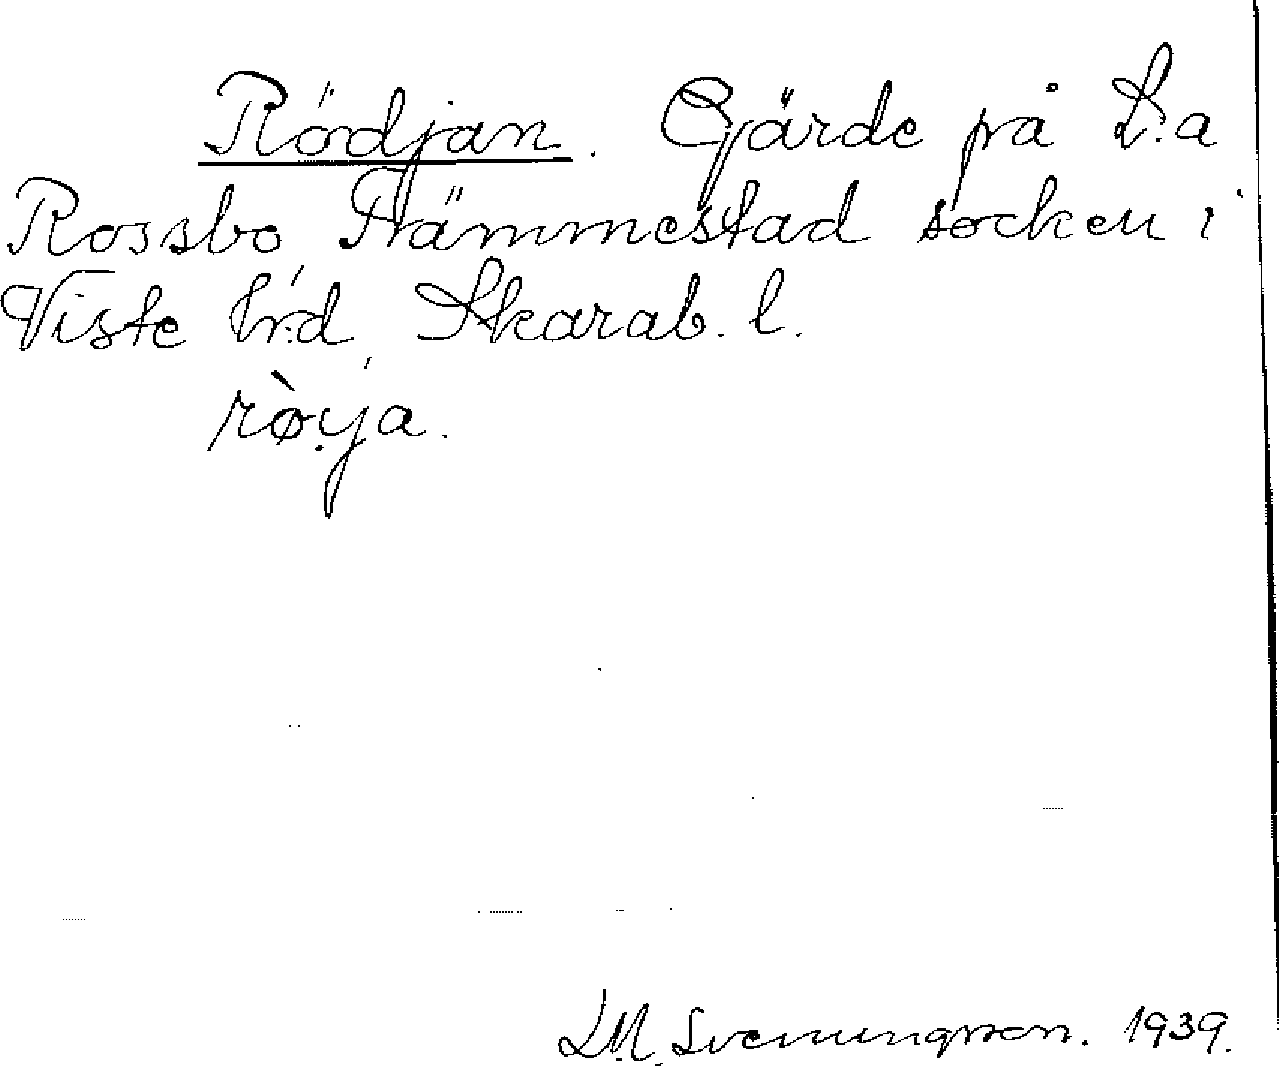 Rödjan. Gärde på L:a
Rossbo Främmestad socken i
Viste hrd, Skarab. l.
rò̤ja.
D.M. Svenungsson. 1939.